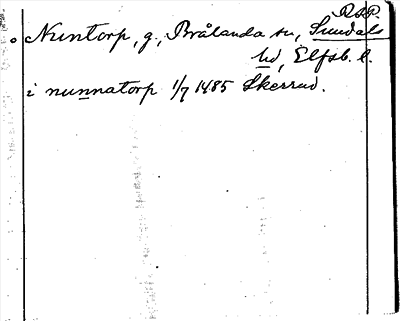 R.S.P.
Nuntorp, g., Brålanda sn, Sundals
hd, Elfsb. l.
i nunnatorp 1/7 1485 Skerrud.